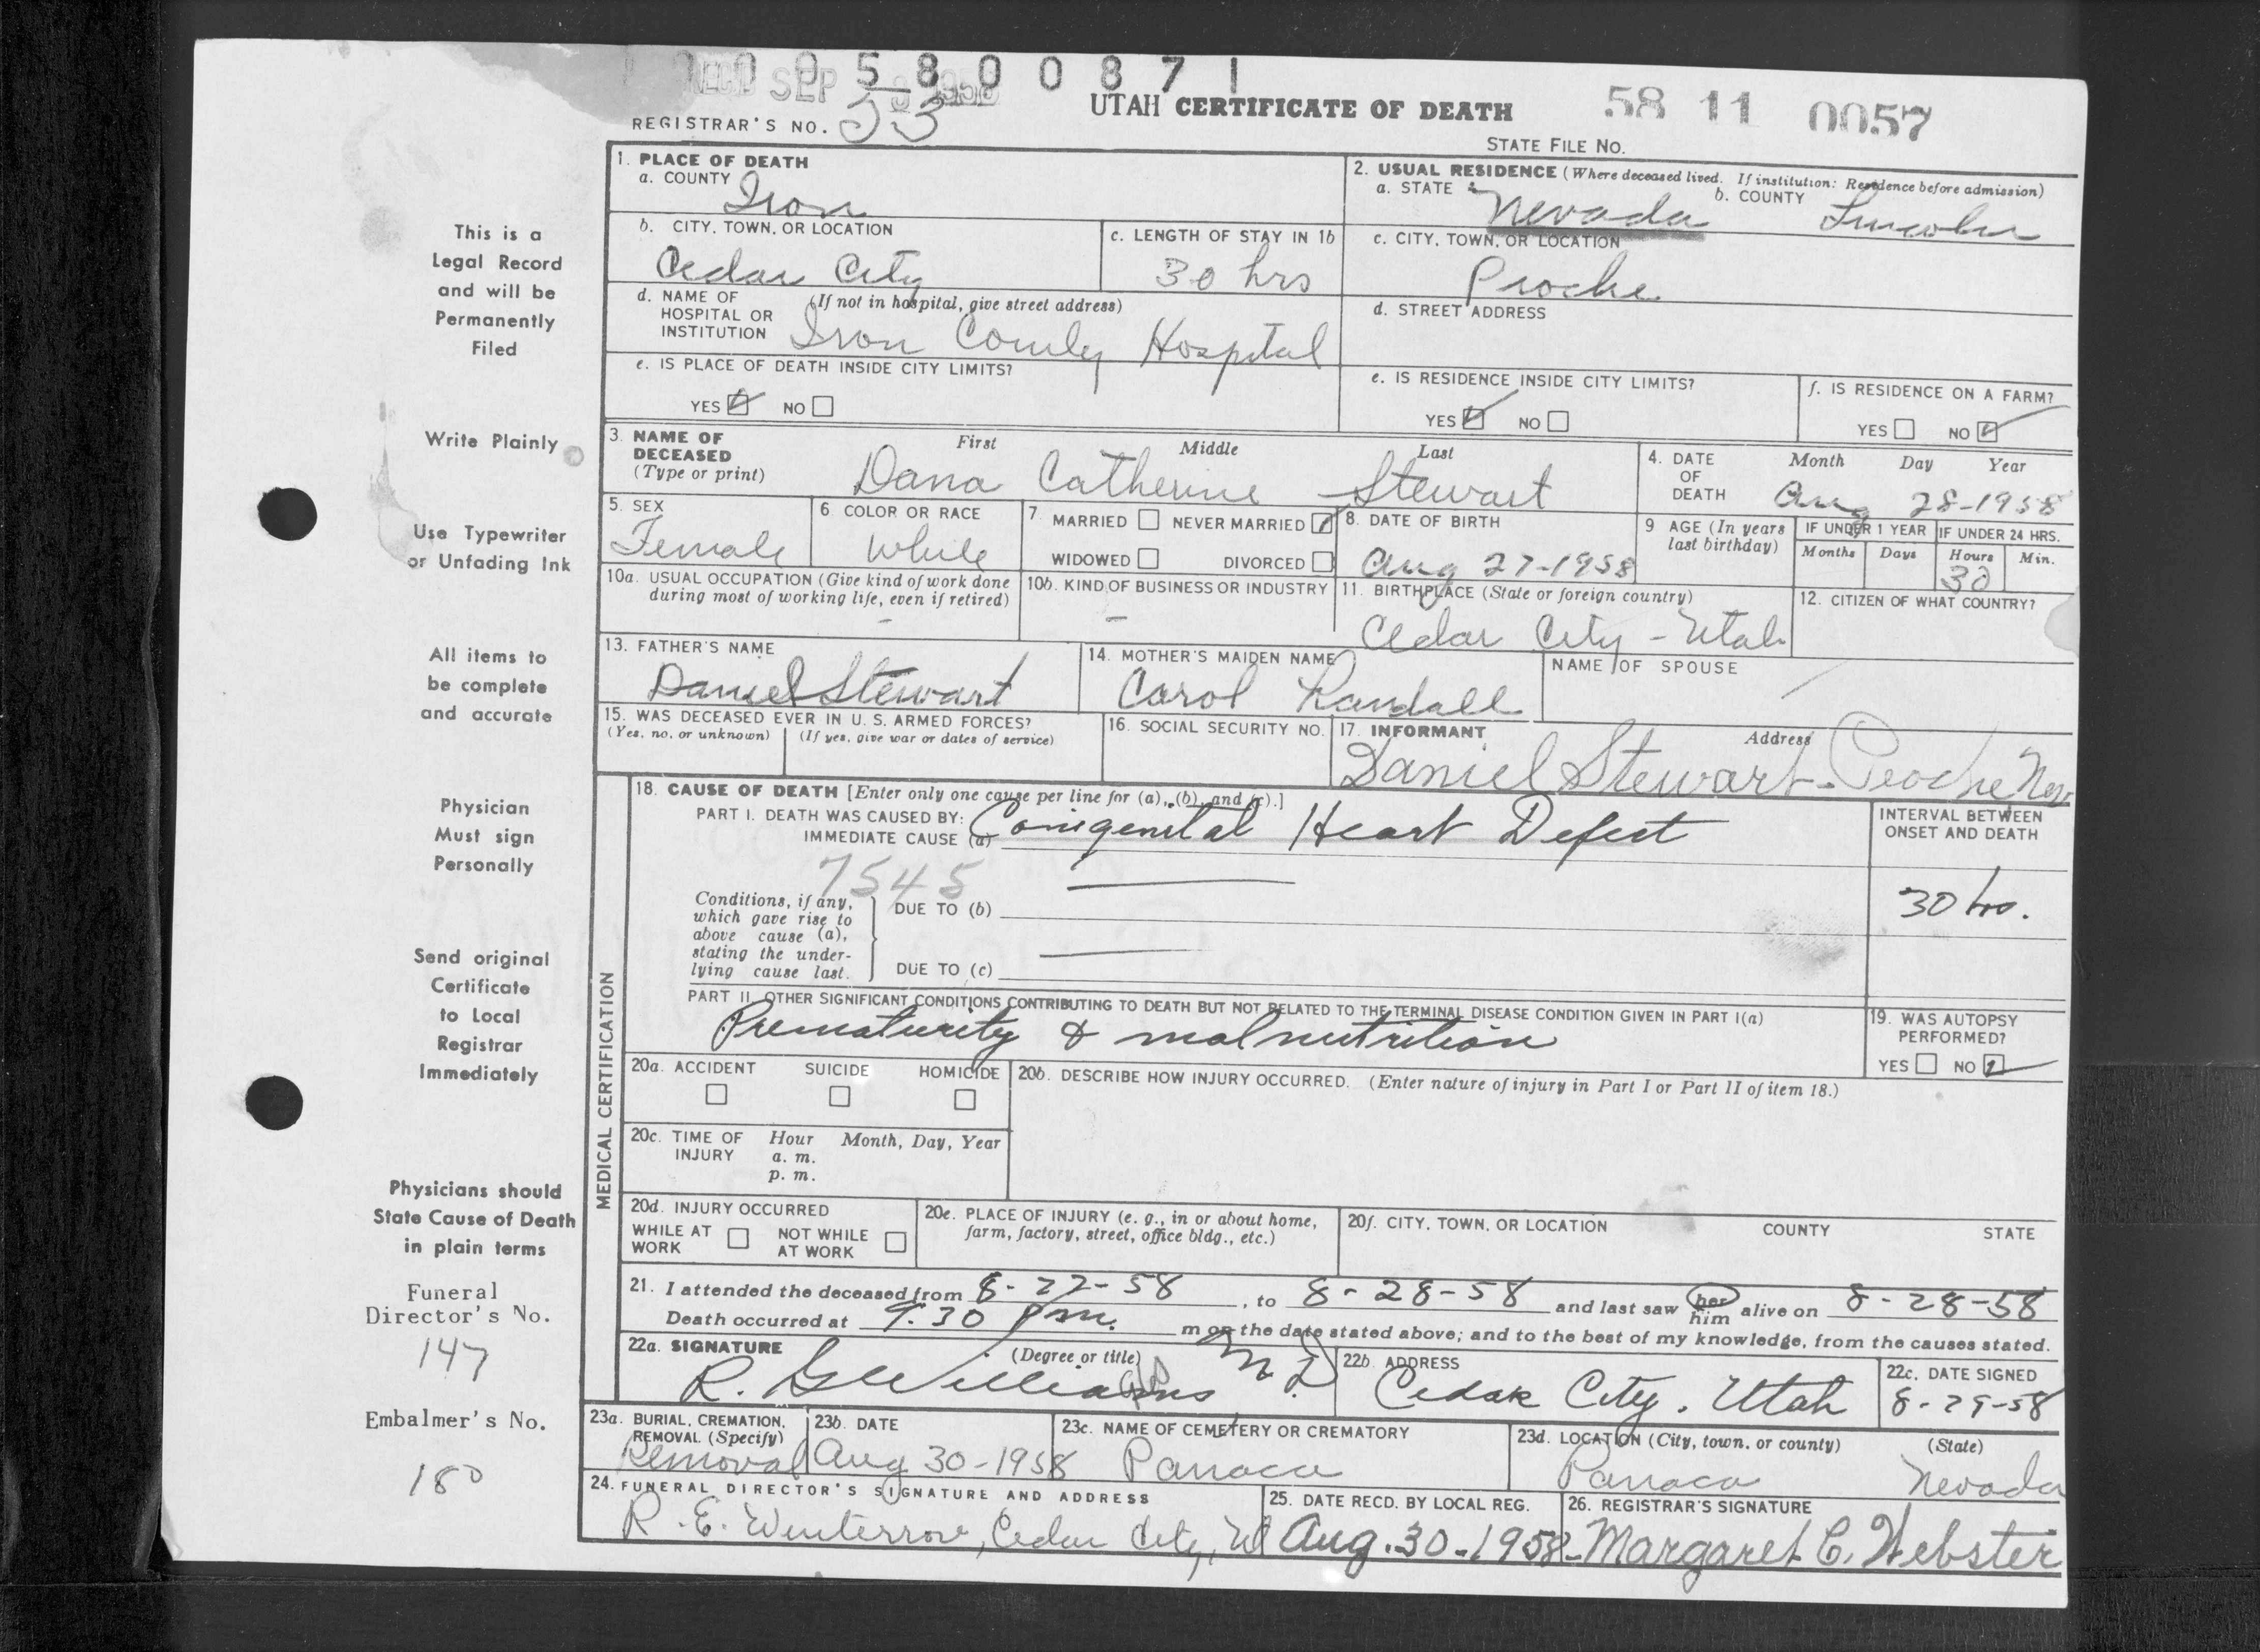 0 0 0 5 8 0 0 8 7 1
REC'D SEP 3 1958
REGISTRAR'S NO. 53
UTAH CERTIFICATE OF DEATH
58 11 0057
STATE FILE NO.
This is a
Legal Record
and will be
Permanently
Filed
Write Plainly
Use Typewriter
or Unfading Ink
All items to
be complete
and accurate
Physician
Must sign
Personally
Send original
Certificate
to Local
Registrar
Immediately
Physicians should
State Cause of Death
in plain terms
Funeral
Director's No.
147
Embalmer's No.
180
1. PLACE OF DEATH
a. COUNTY Iron
2. USUAL RESIDENCE (Where deceased lived. If institution: Residence before admission)
a. STATE Nevada b. COUNTY Lincoln
b. CITY, TOWN, OR LOCATION
Cedar City
c. LENGTH OF STAY IN 1b
30 hrs
c. CITY, TOWN, OR LOCATION
Pioche
d. NAME OF HOSPITAL OR INSTITUTION (If not in hospital, give street address)
Iron County Hospital
d. STREET ADDRESS
e. IS PLACE OF DEATH INSIDE CITY LIMITS?
YES ☑ NO ☐
e. IS RESIDENCE INSIDE CITY LIMITS?
YES ☑ NO ☐
f. IS RESIDENCE ON A FARM?
YES ☐ NO ☑
3. NAME OF DECEASED (Type or print) First Middle Last
Dana Catherine Stewart
4. DATE OF DEATH Month Day Year
Aug 28-1958
5. SEX
Female
6. COLOR OR RACE
White
7. MARRIED ☐ NEVER MARRIED ☑
WIDOWED ☐ DIVORCED ☐
8. DATE OF BIRTH
Aug 27-1958
9 AGE (In years last birthday)
IF UNDER 1 YEAR
Months Days
IF UNDER 24 HRS.
Hours Min.
30
10a. USUAL OCCUPATION (Give kind of work done during most of working life, even if retired)
-
10b. KIND OF BUSINESS OR INDUSTRY
-
11. BIRTHPLACE (State or foreign country)
Cedar City - Utah
12. CITIZEN OF WHAT COUNTRY?
13. FATHER'S NAME
Daniel Stewart
14. MOTHER'S MAIDEN NAME
Carol Randall
NAME OF SPOUSE
15. WAS DECEASED EVER IN U. S. ARMED FORCES?
(Yes, no, or unknown) (If yes, give war or dates of service)
16. SOCIAL SECURITY NO.
17. INFORMANT Address
Daniel Stewart - Pioche Nev
MEDICAL CERTIFICATION
18. CAUSE OF DEATH [Enter only one cause per line for (a), (b), and (c).]
PART I. DEATH WAS CAUSED BY:
IMMEDIATE CAUSE (a) Conigenital Heart Defect
INTERVAL BETWEEN ONSET AND DEATH
30 hrs.
7545
Conditions, if any, which gave rise to above cause (a), stating the underlying cause last.
DUE TO (b)
DUE TO (c)
PART II. OTHER SIGNIFICANT CONDITIONS CONTRIBUTING TO DEATH BUT NOT RELATED TO THE TERMINAL DISEASE CONDITION GIVEN IN PART I(a)
Prematurity & malnutrition
19. WAS AUTOPSY PERFORMED?
YES ☐ NO ☑
20a. ACCIDENT SUICIDE HOMICIDE
☐ ☐ ☐
20b. DESCRIBE HOW INJURY OCCURRED. (Enter nature of injury in Part I or Part II of item 18.)
20c. TIME OF INJURY Hour Month, Day, Year
a. m.
p. m.
20d. INJURY OCCURRED
WHILE AT WORK ☐ NOT WHILE AT WORK ☐
20e. PLACE OF INJURY (e. g., in or about home, farm, factory, street, office bldg., etc.)
20f. CITY, TOWN, OR LOCATION COUNTY STATE
21. I attended the deceased from 8-27-58, to 8-28-58 and last saw her him alive on 8-28-58
Death occurred at 9:30 pm. m on the date stated above; and to the best of my knowledge, from the causes stated.
22a. SIGNATURE (Degree or title)
R. G. Williams MD
22b. ADDRESS
Cedar City, Utah
22c. DATE SIGNED
8-29-58
23a. BURIAL, CREMATION, REMOVAL (Specify)
Removal
23b. DATE
Aug 30-1958
23c. NAME OF CEMETERY OR CREMATORY
Panaca
23d. LOCATION (City, town, or county) (State)
Panaca Nevada
24. FUNERAL DIRECTOR'S SIGNATURE AND ADDRESS
R. E. Winterrose, Cedar City, Ut
25. DATE RECD. BY LOCAL REG.
Aug. 30-1958-
26. REGISTRAR'S SIGNATURE
Margaret C. Webster